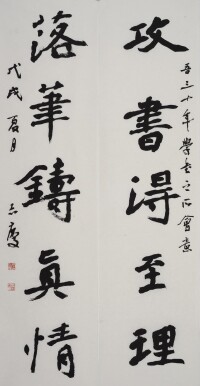 攻書得至理
吾三十年學書之所會意
落筆鑄真情
戊戌夏月
志慶